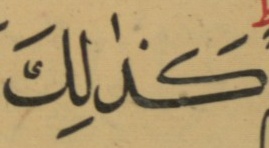 كَذٰلِكَ